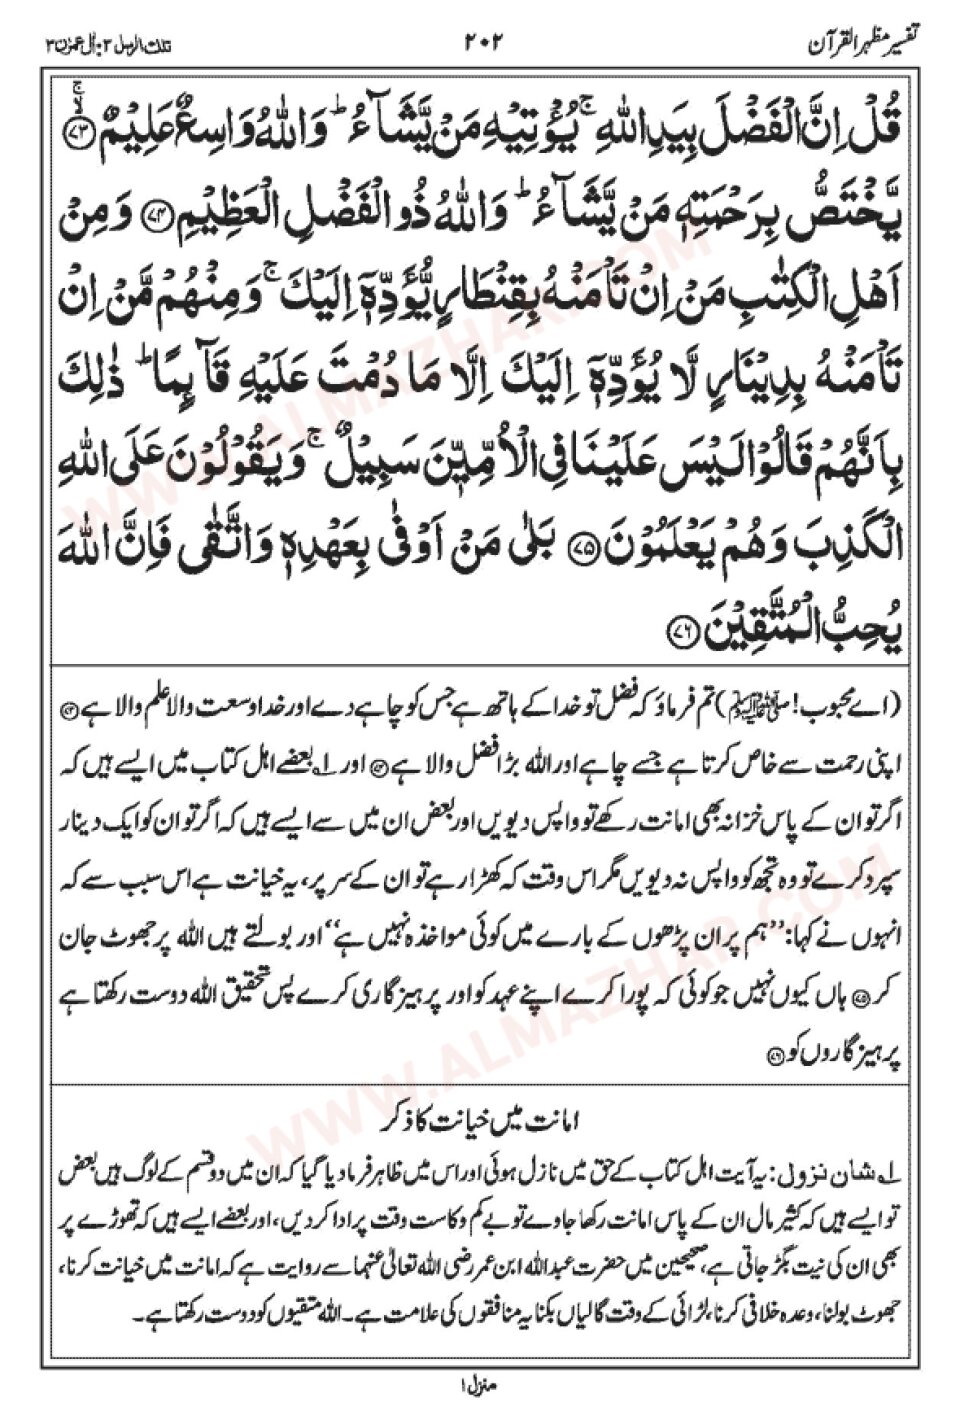 تفسیر مظہر القرآن
۲۰۲
تلک الرسل ۳ : اٰل عمرٰن ۳
قُلْ اِنَّ الْفَضْلَ بِیَدِ اللّٰهِ ۚ یُؤْتِیْهِ مَنْ یَّشَآءُ ؕ وَاللّٰهُ وَاسِعٌ عَلِیْمٌ ﴿۷۳﴾
یَّخْتَصُّ بِرَحْمَتِهٖ مَنْ یَّشَآءُ ؕ وَاللّٰهُ ذُو الْفَضْلِ الْعَظِیْمِ ﴿۷۴﴾ وَمِنْ
اَهْلِ الْکِتٰبِ مَنْ اِنْ تَاْمَنْهُ بِقِنْطَارٍ یُّؤَدِّهٖۤ اِلَیْكَ ۚ وَمِنْهُمْ مَّنْ اِنْ
تَاْمَنْهُ بِدِیْنَارٍ لَّا یُؤَدِّهٖۤ اِلَیْكَ اِلَّا مَا دُمْتَ عَلَیْهِ قَآئِمًا ؕ ذٰلِكَ
بِاَنَّهُمْ قَالُوْا لَیْسَ عَلَیْنَا فِی الْاُمِّیّٖنَ سَبِیْلٌ ۚ وَیَقُوْلُوْنَ عَلَی اللّٰهِ
الْکَذِبَ وَهُمْ یَعْلَمُوْنَ ﴿۷۵﴾ بَلٰی مَنْ اَوْفٰی بِعَهْدِهٖ وَاتَّقٰی فَاِنَّ اللّٰهَ
یُحِبُّ الْمُتَّقِیْنَ ﴿۷۶﴾
(اے محبوب! ﷺ) تم فرماؤ کہ فضل تو خدا کے ہاتھ ہے جس کو چاہے دے اور خدا وسعت والا علم والا ہے ﴿۷۳﴾
اپنی رحمت سے خاص کرتا ہے جسے چاہے اور اللہ بڑا فضل والا ہے ﴿۷۴﴾ اور ۱؎ بعضے اہل کتاب میں ایسے ہیں کہ
اگر تو ان کے پاس خزانہ بھی امانت رکھے تو واپس دیویں اور بعض ان میں سے ایسے ہیں کہ اگر تو ان کو ایک دینار
سپرد کرے تو وہ تجھ کو واپس نہ دیویں مگر اس وقت کہ کھڑا رہے تو ان کے سر پر، یہ خیانت ہے اس سبب سے کہ
انہوں نے کہا: ’’ہم پر ان پڑھوں کے بارے میں کوئی مواخذہ نہیں ہے‘‘ اور بولتے ہیں اللہ پر جھوٹ جان
کر ﴿۷۵﴾ ہاں کیوں نہیں جو کوئی کہ پورا کرے اپنے عہد کو اور پرہیز گاری کرے پس تحقیق اللہ دوست رکھتا ہے
پرہیز گاروں کو ﴿۷۶﴾
امانت میں خیانت کا ذکر
۱؎ شان نزول: یہ آیت اہل کتاب کے حق میں نازل ہوئی اور اس میں ظاہر فرما دیا گیا کہ ان میں دو قسم کے لوگ ہیں بعض
تو ایسے ہیں کہ کثیر مال ان کے پاس امانت رکھا جاوے تو بے کم و کاست وقت پر ادا کر دیں، اور بعضے ایسے ہیں کہ تھوڑے پر
بھی ان کی نیت بگڑ جاتی ہے، صحیحین میں حضرت عبداللہ ابن عمر رضی اللہ تعالیٰ عنہما سے روایت ہے کہ امانت میں خیانت کرنا،
جھوٹ بولنا، وعدہ خلافی کرنا، لڑائی کے وقت گالیاں بکنا یہ منافقوں کی علامت ہے۔ اللہ متقیوں کو دوست رکھتا ہے۔
منزل ۱
WWW.ALMAZHAR.COM
WWW.ALMAZHAR.COM